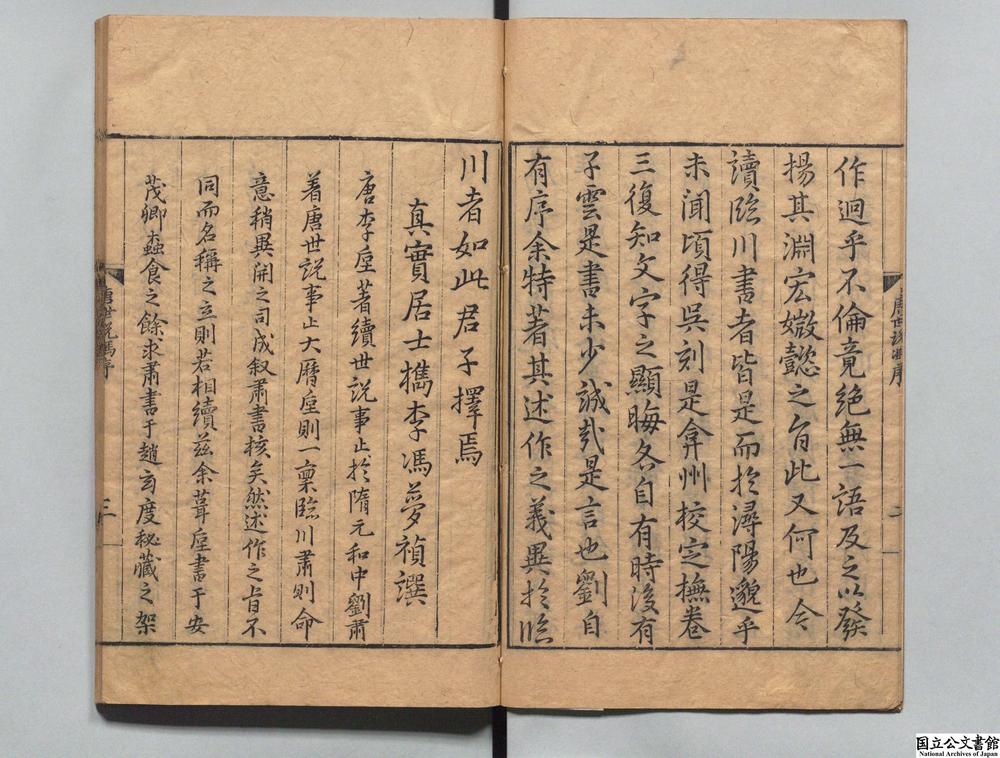 作迥乎不倫竟絕無一語及之以發
揚其淵宏媺懿之旨此又何也今
讀臨川書者皆是而於潯陽邈乎
未聞頃得吳刻是弇州校定撫卷
三復知文字之顯晦各自有時後有
子雲是書未少誠哉是言也劉自
有序余特著其述作之義異於臨
唐世說馮序
二
川者如此君子擇焉
真實居士檇李馮夢禎譔
唐李垕著續世說事止於隋元和中劉肅
着唐世說事止大曆垕則一稟臨川肅則命
意稍異開之司成叙肅書核矣然述作之旨不
同而名稱之立則若相續茲余葺垕書于安
茂卿蟲食之餘求肅書于趙玄度秘藏之架
唐世說馮序
三
国立公文書館
National Archives of Japan